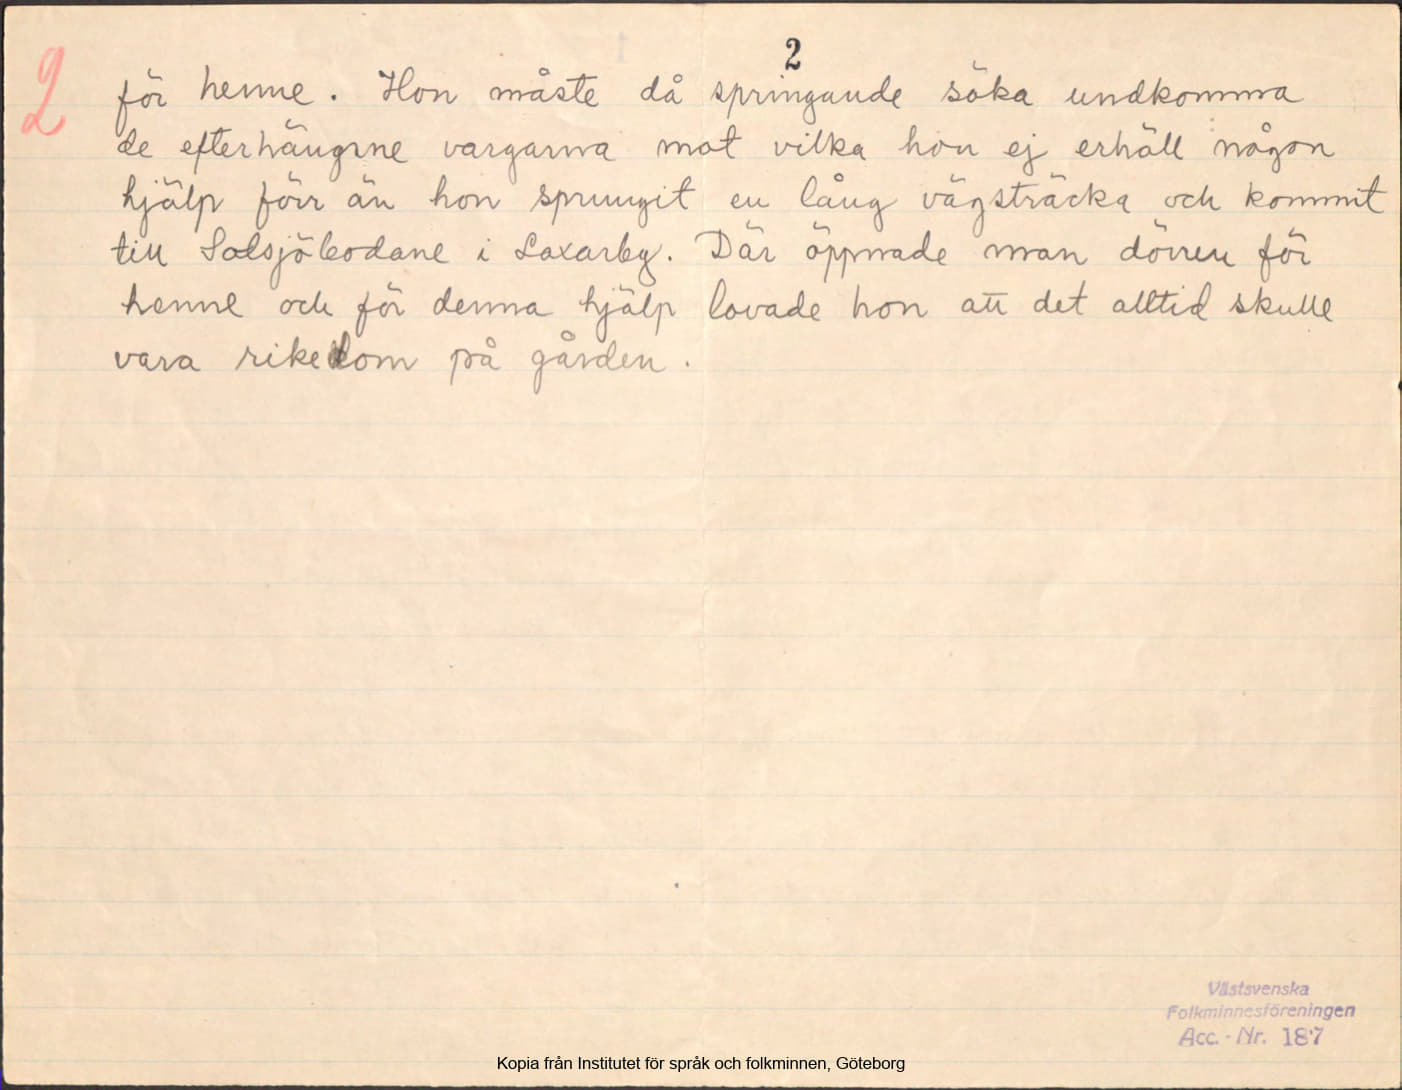 2
2
för henne. Hon måste då springande söka undkomma
de efterhängsne vargarna mot vilka hon ej erhöll någon
hjälp förr än hon sprungit en lång vägsträcka och kommit
till Salsjöbodane i Laxarby. Där öppnade man dörren för
henne och för denna hjälp lovade hon att det alltid skulle
vara rikedom på gården.
Västsvenska
Folkminnesföreningen
Acc.-Nr. 187
Kopia från Institutet för språk och folkminnen, Göteborg